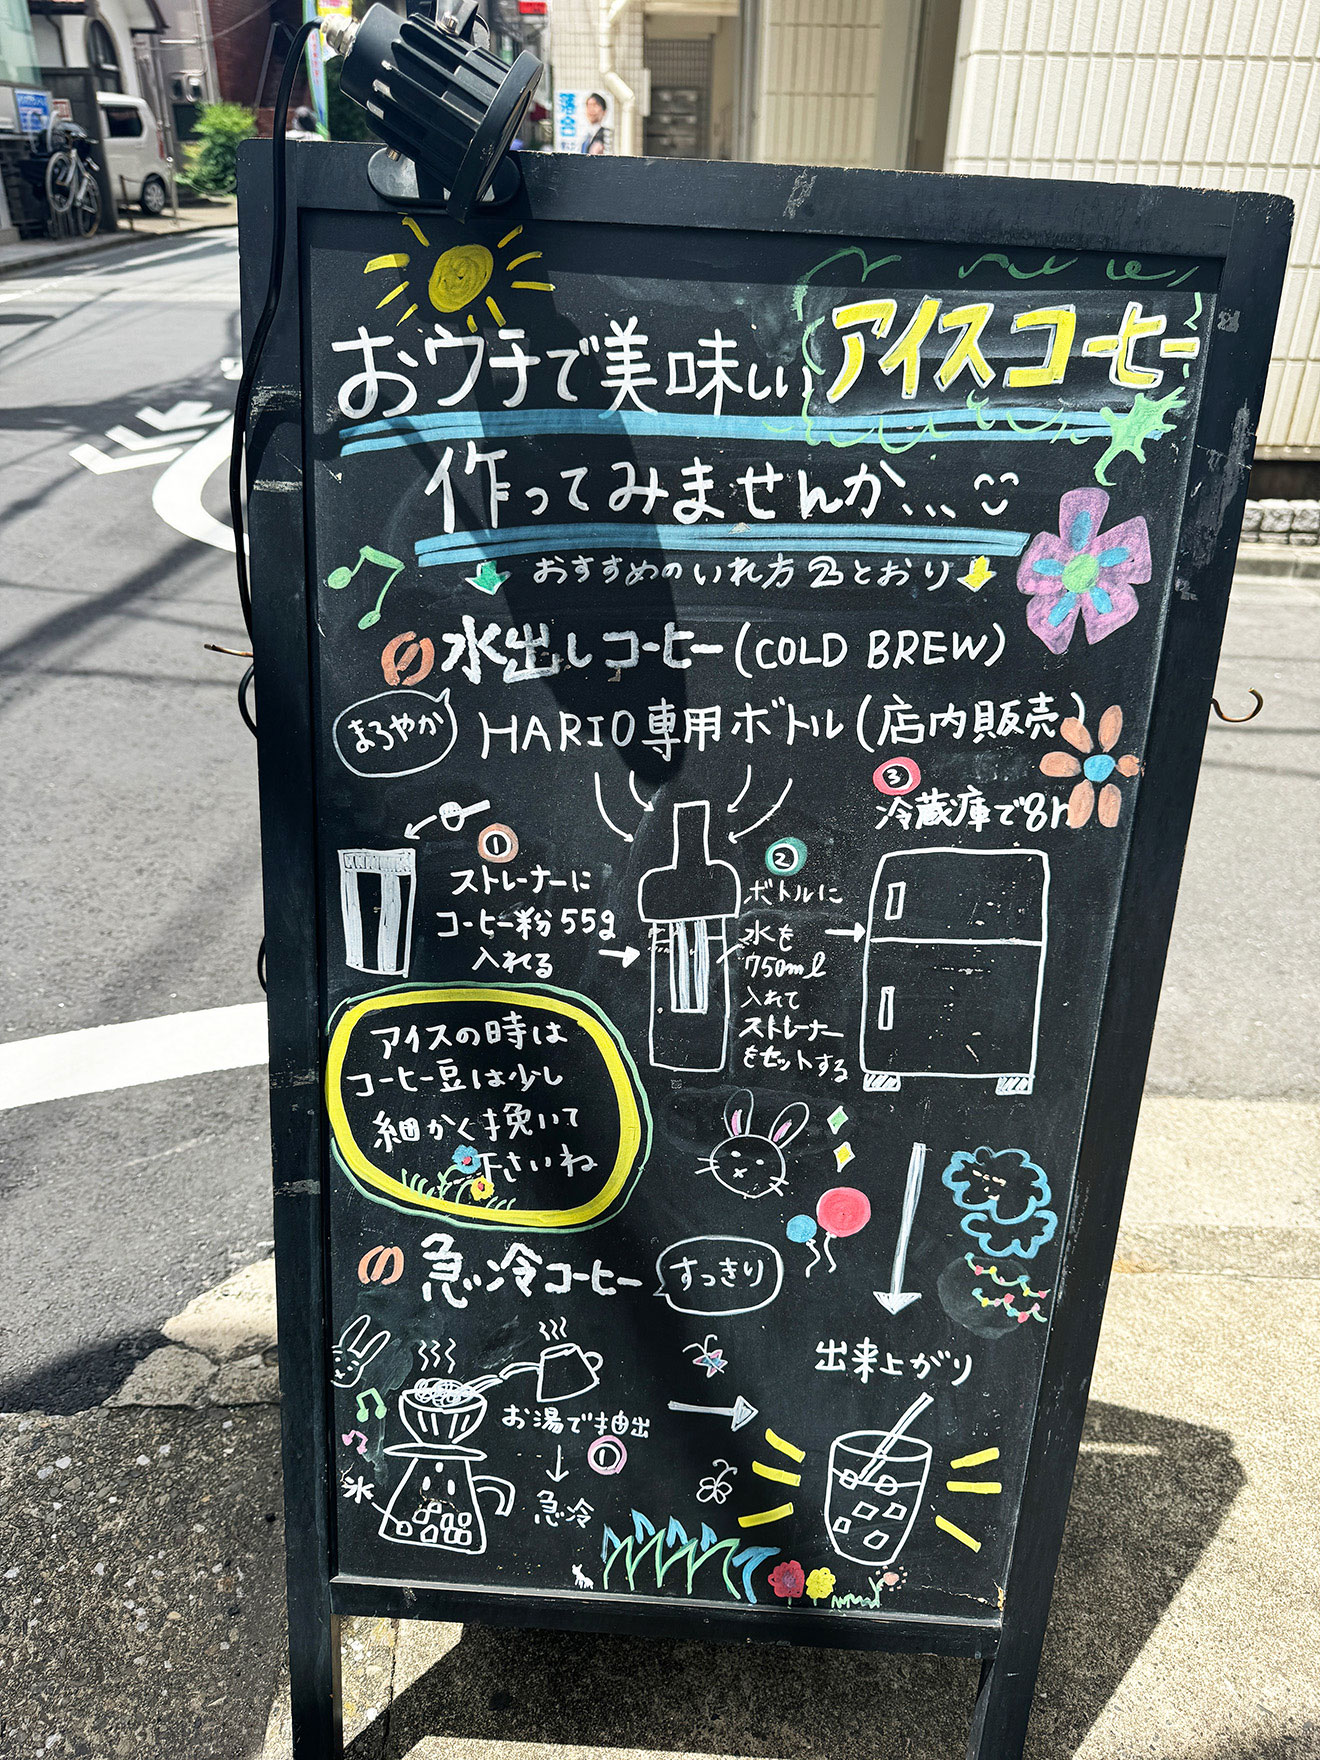 おウチで美味しいアイスコーヒー
作ってみませんか...
おすすめのいれ方2とおり
水出しコーヒー(COLD BREW)
まろやか
HARIO専用ボトル(店内販売)
①
ストレーナーに
コーヒー粉55g
入れる
②
ボトルに
水を
750ml
入れて
ストレーナー
をセットする
③
冷蔵庫で8h
アイスの時は
コーヒー豆は少し
細かく挽いて
下さいね
急冷コーヒー
すっきり
出来上がり
お湯で抽出
①
氷
急冷